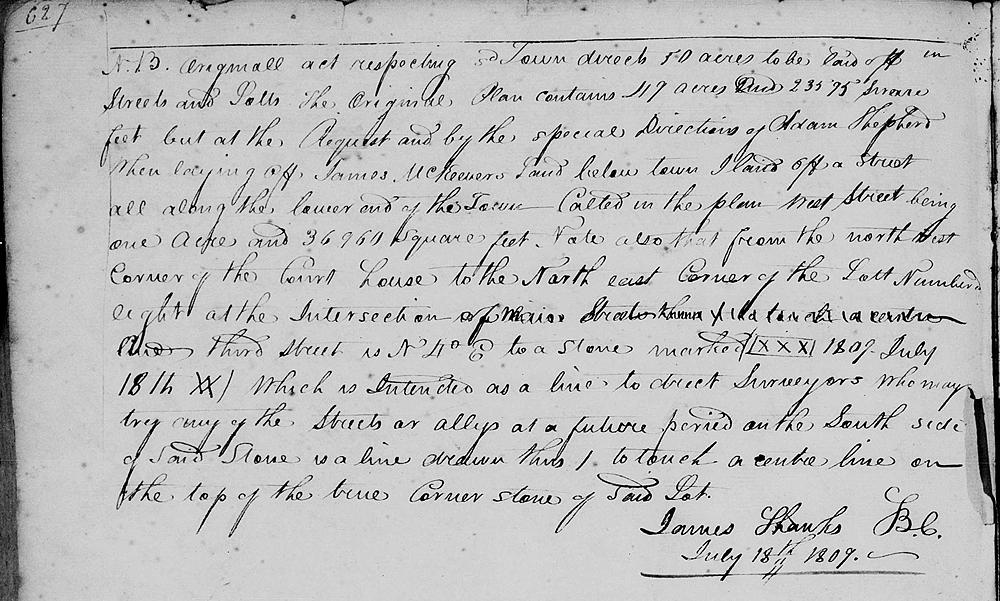 627
N.B. Originall act respecting sd Town directs 50 acres to be Laid off in
Streets and Lotts The Original Plan contains 49 acres and 23595 Square
feet but at the Request and by the special Direction of Adam Shepherd
When laying off James McKewers Land below town I laid off a Street
all along the lower end of the Town Called in the plan West Street being
one Acre and 36960 Square feet. Note also that from the north West
Corner of the Court house to the North east Corner of the Lott Number'd
eight at the Intersection of Street
third Street is N 4° E to a Stone marked XXX 1809. July
18th XX) Which is Intended as a line to direct Surveyors who may
try any of the Streets or allys at a future period on the South side
of Said Stone is a line drawn thus 1 to touch a centre line on
the top of the true Corner stone of Said Lot.
James Shanks B.C.
July 18th 1809.